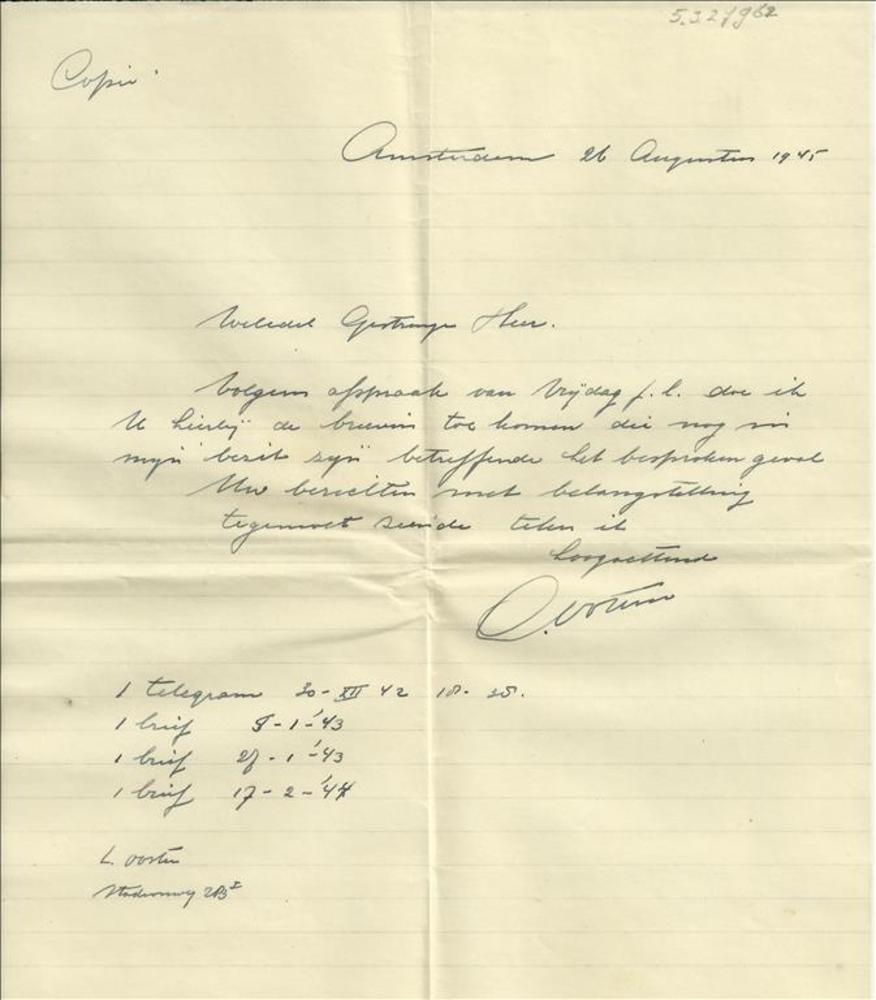 5.3.27962
Copie.
Amsterdam 26 Augustus 1945
Weledel Gestrenge Heer.
Volgens afspraak van Vrijdag j.l. doe ik
U hierbij de brieven toe komen die nog in
mijn bezit zijn betreffende het besproken geval
Uw berichten met belangstelling
tegemoet ziende teken ik
hoogachtend
L. Oosten
1 telegram 30-XII 42
1 brief 8-1-'43
1 brief 27-1-'43
1 brief 17-2-'44
L. Oosten
Stadionweg